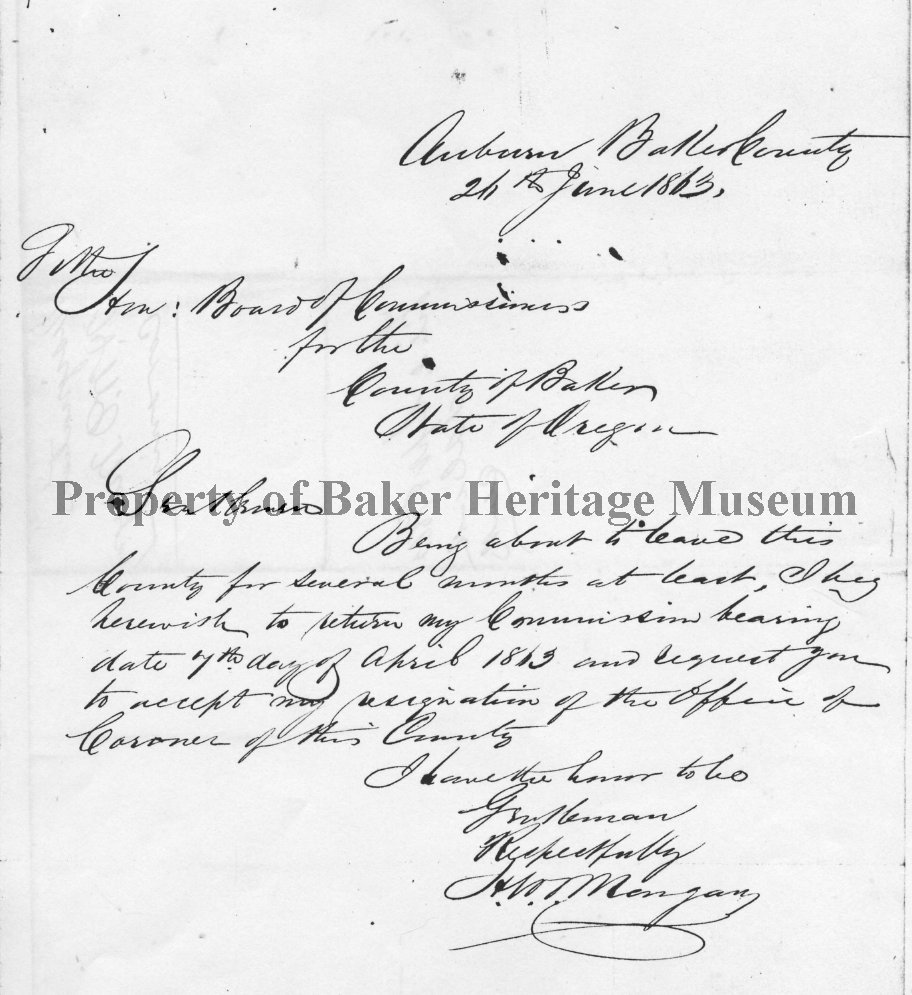 Auburn Baker County
26th June 1863.
To the
Hon: Board of Commissioners
for the
County of Baker
State of Oregon
Property of Baker Heritage Museum
Gentlemen
Being about to leave this
County for several months at least, I beg
herewith to return my Commission bearing
date 7th day of April 1863 and request you
to accept my resignation of the Office of
Coroner of this County
I have the honor to be
Gentleman
Respectfully
Morgan